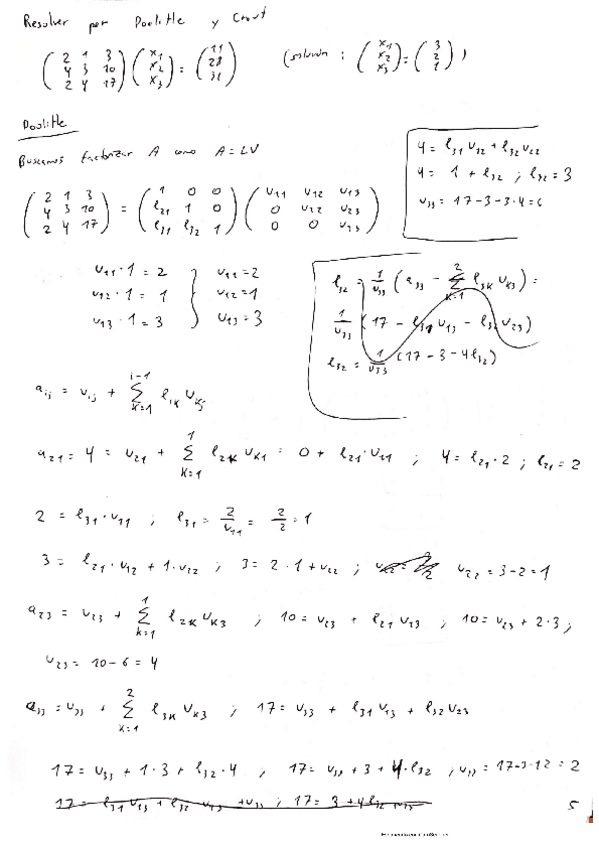 Resolver por Doolitle y Crout
( 2 1 3 / 4 3 10 / 2 4 17 ) ( x₁ / x₂ / x₃ ) = ( 11 / 28 / 31 ) (solución : ( x₁ / x₂ / x₃ ) = ( 3 / 2 / 1 ) )
Doolitle
Buscamos factorizar A como A = LU
( 2 1 3 / 4 3 10 / 2 4 17 ) = ( 1 0 0 / l₂₁ 1 0 / l₃₁ l₃₂ 1 ) ( u₁₁ u₁₂ u₁₃ / 0 u₂₂ u₂₃ / 0 0 u₃₃ )
4 = l₃₁ u₃₂ + l₃₂ u₂₂
4 = 1 + l₃₂ ; l₃₂ = 3
u₃₃ = 17 - 3 - 3·4 = 6
u₁₁ · 1 = 2 } u₁₁ = 2
u₁₂ · 1 = 1 } u₁₂ = 1
u₁₃ · 1 = 3 } u₁₃ = 3
l₃₂ = 1/u₃₃ ( a₃₃ - Σ_{k=1}^{2} l₃ₖ uₖ₃ ) =
1/u₃₃ ( 17 - l₃₁ u₁₃ - l₃₂ u₂₃ )
l₃₂ = 1/u₃₃ ( 17 - 3 - 4 l₃₂ )
aᵢⱼ = uᵢⱼ + Σ_{k=1}^{i-1} lᵢₖ uₖⱼ
a₂₁ = 4 = u₂₁ + Σ_{k=1}^{1} l₂ₖ uₖ₁ = 0 + l₂₁ · u₁₁ ; 4 = l₂₁ · 2 ; l₂₁ = 2
2 = l₃₁ · u₁₁ ; l₃₁ = 2/u₁₁ = 2/2 = 1
3 = l₂₁ · u₁₂ + 1 · u₂₂ ; 3 = 2 · 1 + u₂₂ ; u₂₂ = 3 - 2 = 1
a₂₃ = u₂₃ + Σ_{k=1}^{1} l₂ₖ uₖ₃ ; 10 = u₂₃ + l₂₁ u₂₃ ; 10 = u₂₃ + 2·3 ;
u₂₃ = 10 - 6 = 4
a₃₃ = u₃₃ + Σ_{k=1}^{2} l₃ₖ uₖ₃ ; 17 = u₃₃ + l₃₁ u₁₃ + l₃₂ u₂₃
17 = u₃₃ + 1·3 + l₃₂ · 4 ; 17 = u₃₃ + 3 + 4 · l₃₂ ; u₃₃ = 17-3-12 = 2
17 = l₃₁ u₁₃ + l₃₂ u₂₃ + u₃₃ ; 17 = 3 + 4 l₃₂ + u₃₃
5